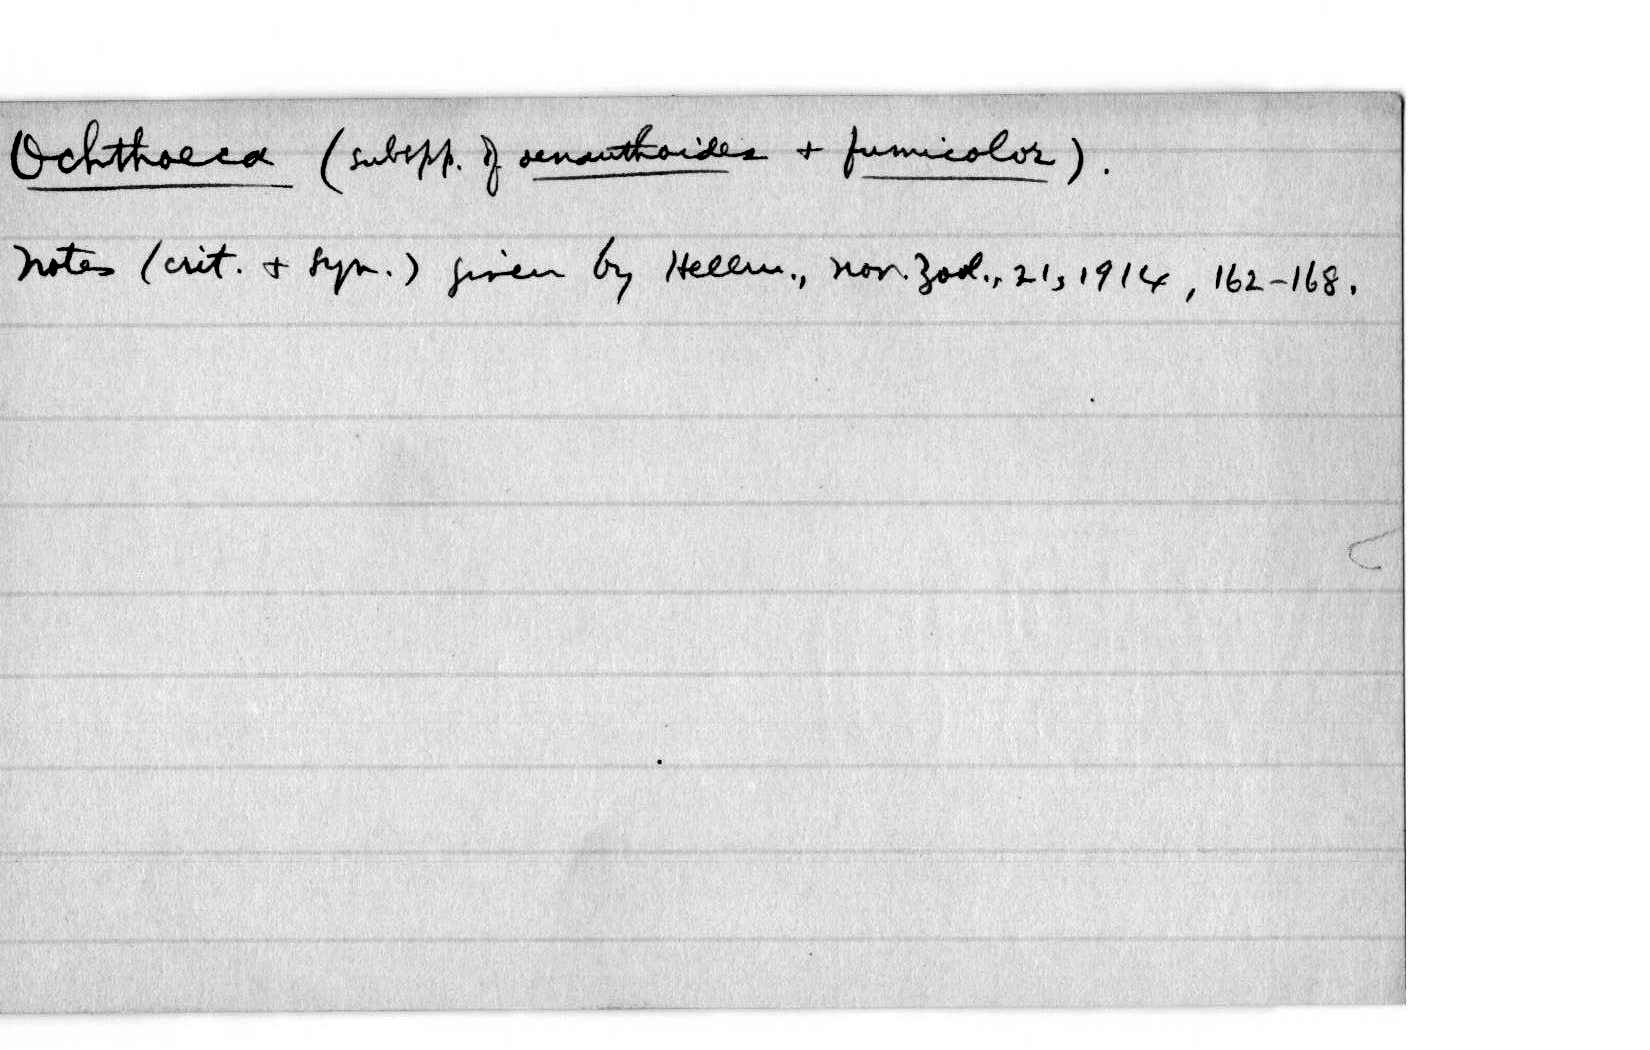 Ochthoeca (subspp. of oenanthoides + fumicolor).
Notes (crit. + syn.) given by Hellm., Nov. Zool., 21, 1914, 162-168.